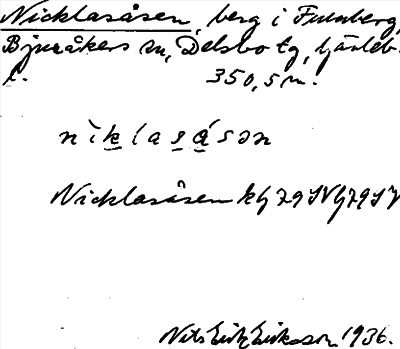 Nicklasåsen, berg i Furuberg,
Bjuråkers sn, Delsbo tg, Gävleb.
l. 350,5 m.
nìklasásən
Nicklasåsen kg 79 SV g 79 SV
Nils Erik Eriksson 1936.